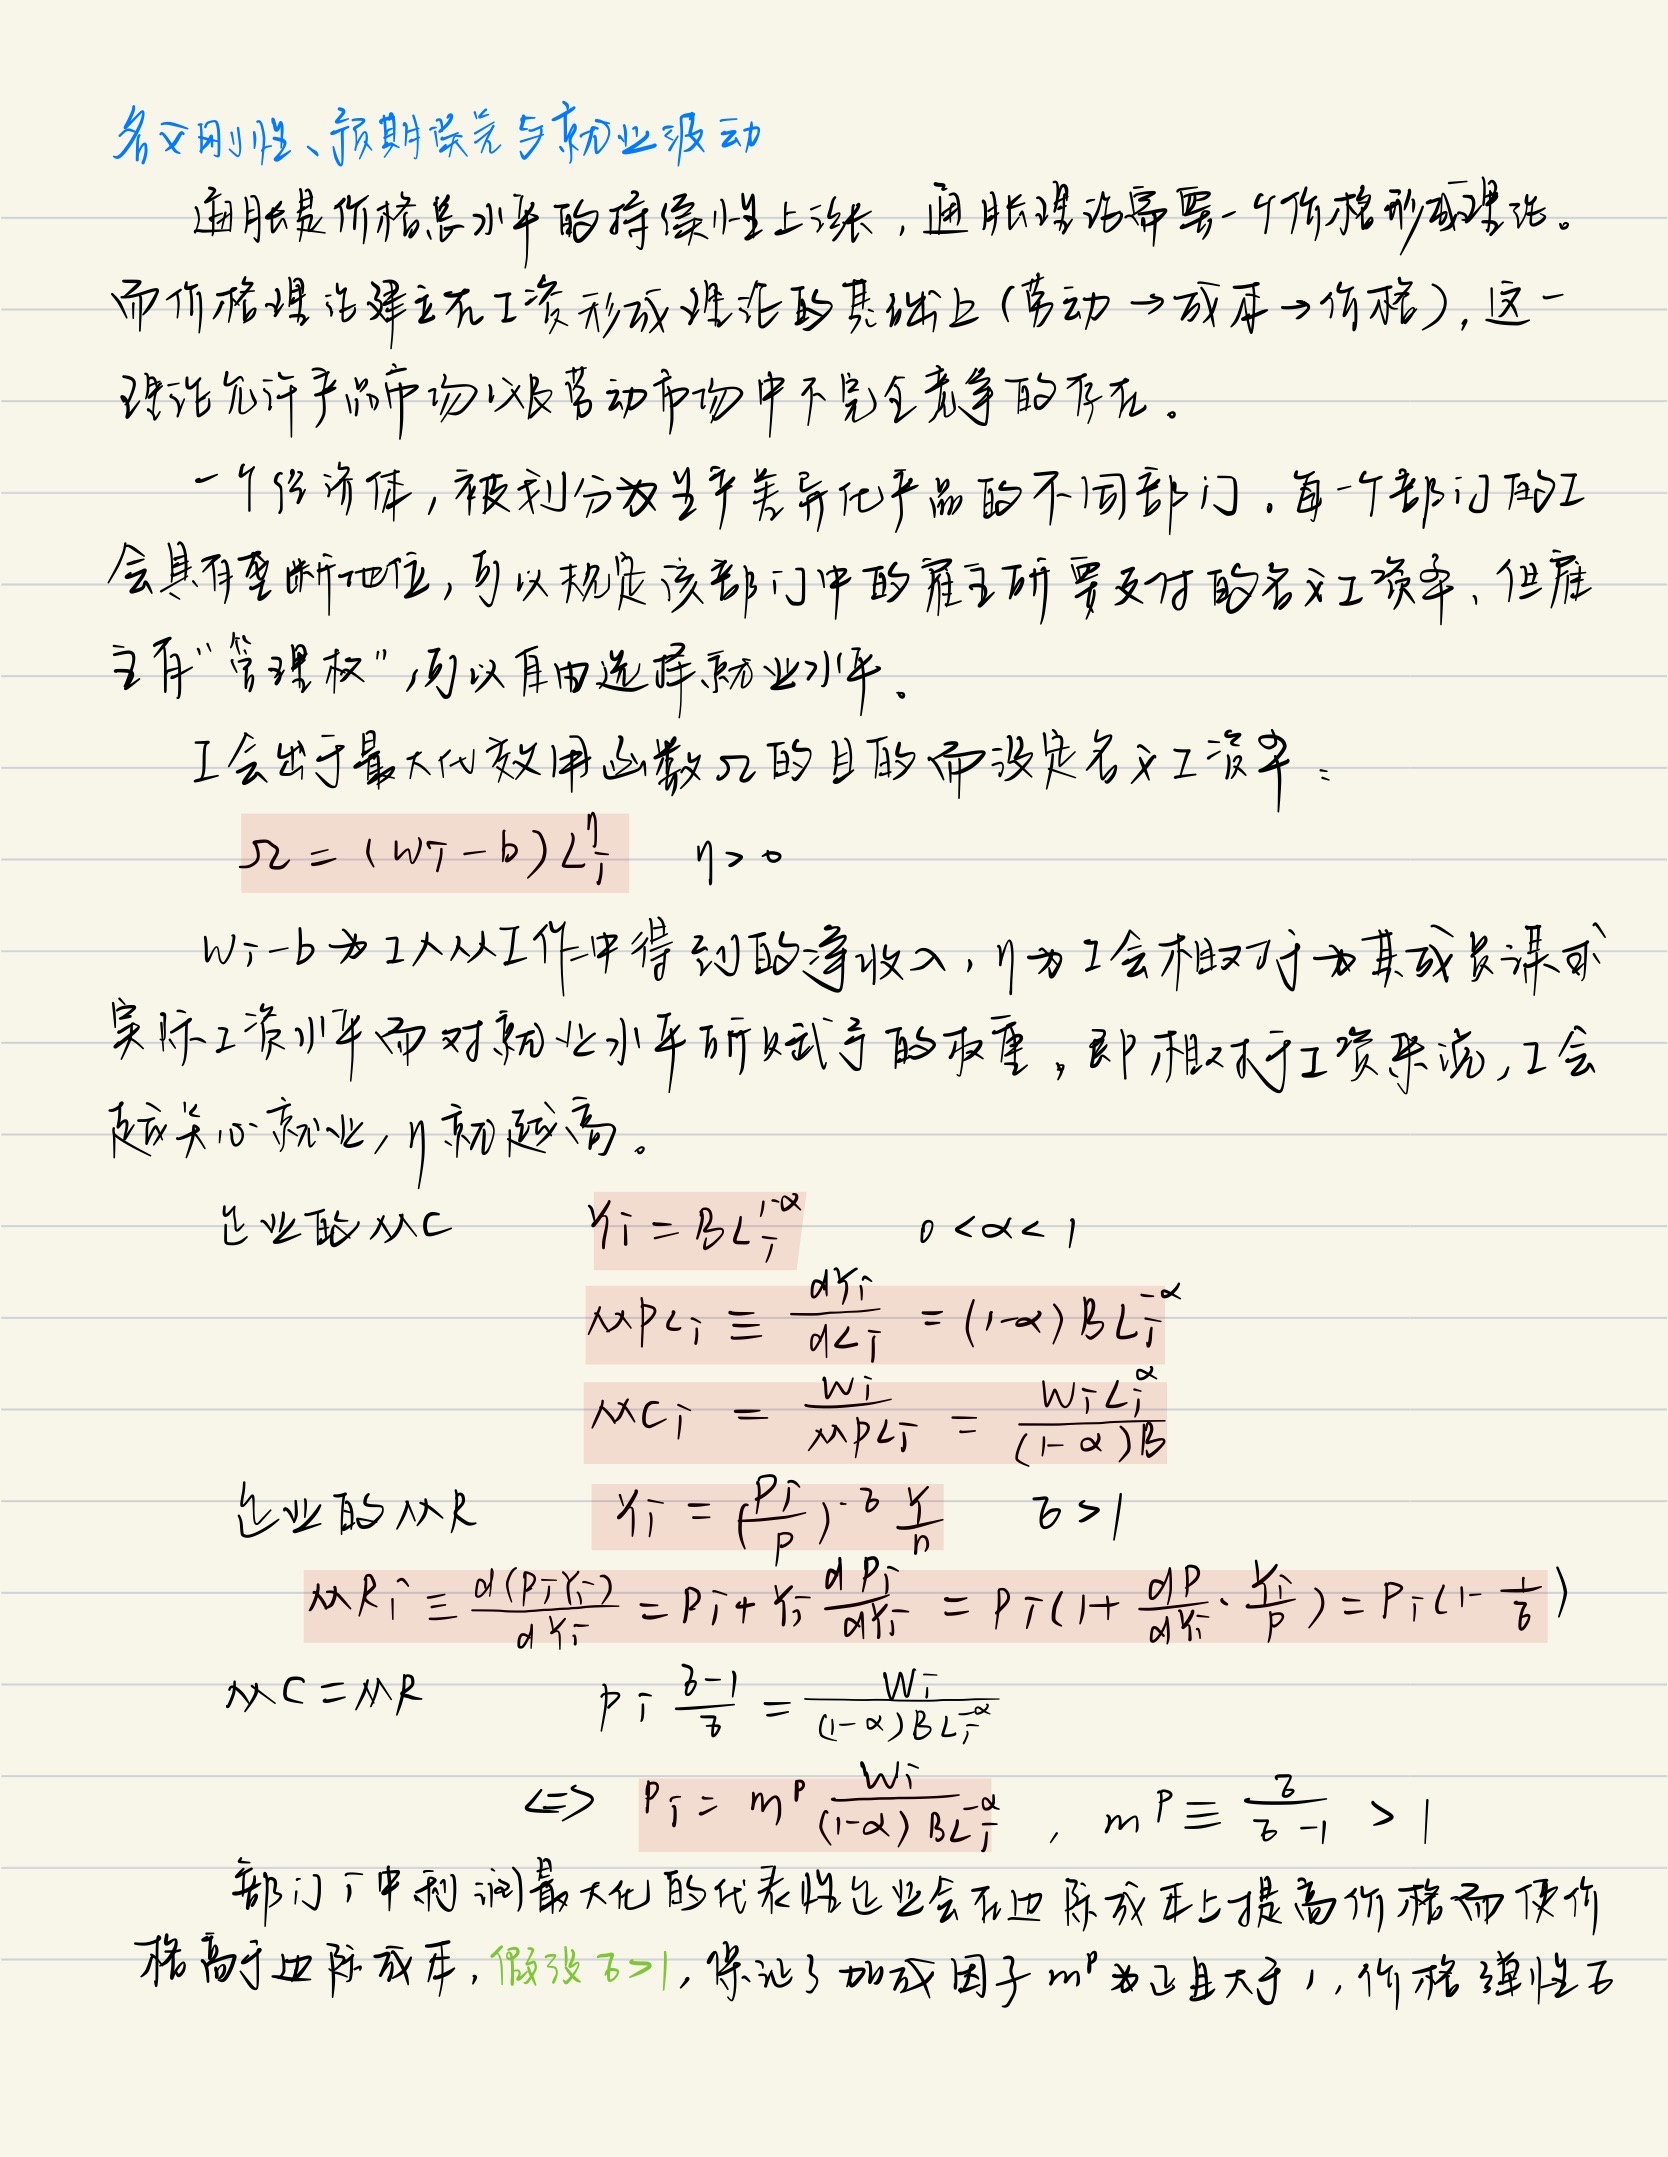 名义刚性、预期误差与就业波动
通胀是价格总水平的持续性上涨，通胀理论需要一个价格形成理论。
而价格理论建立在工资形成理论的基础上（劳动→成本→价格），这一
理论允许产品市场以及劳动市场中不完全竞争的存在。
一个经济体，被划分为生产差异化产品的不同部门。每一个部门的工
会具有垄断地位，可以规定该部门中的雇主所要支付的名义工资率、但雇
主有“管理权”，可以自由选择就业水平。
工会出于最大化效用函数Ω的目的而设定名义工资率：
Ω = (wi − b) Li^η  η > 0
wi − b 为工人从工作中得到的净收入，η为工会相对于为其成员谋求
实际工资水平而对就业水平所赋予的权重，即相对于工资来说，工会
越关心就业，η就越高。
企业的MC  Yi = B Li^{1-α}  0 < α < 1
MPLi ≡ dYi/dLi = (1-α) B Li^{-α}
MCi = Wi/MPLi = Wi Li^α/((1-α)B)
企业的MR  Yi = (Pi/P)^{-σ} Y/n  σ > 1
MRi ≡ d(PiYi)/dYi = Pi + Yi dPi/dYi = Pi (1 + dP/dYi · Yi/P) = Pi (1 - 1/σ)
MC = MR  Pi (σ-1)/σ = Wi/((1-α) B Li^{-α})
<=> Pi = m^P Wi/((1-α) B Li^{-α}) , m^P ≡ σ/(σ-1) > 1
部门i中利润最大化的代表性企业会在边际成本上提高价格而使价
格高于边际成本，假设σ>1，保证了加成因子m^P为正且大于1，价格弹性σ